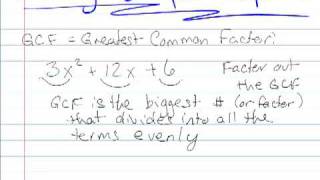 GCF = Greatest Common Factor:
3x² + 12x + 6 Factor out the GCF
GCF is the biggest # (or factor)
that divides into all the
terms evenly